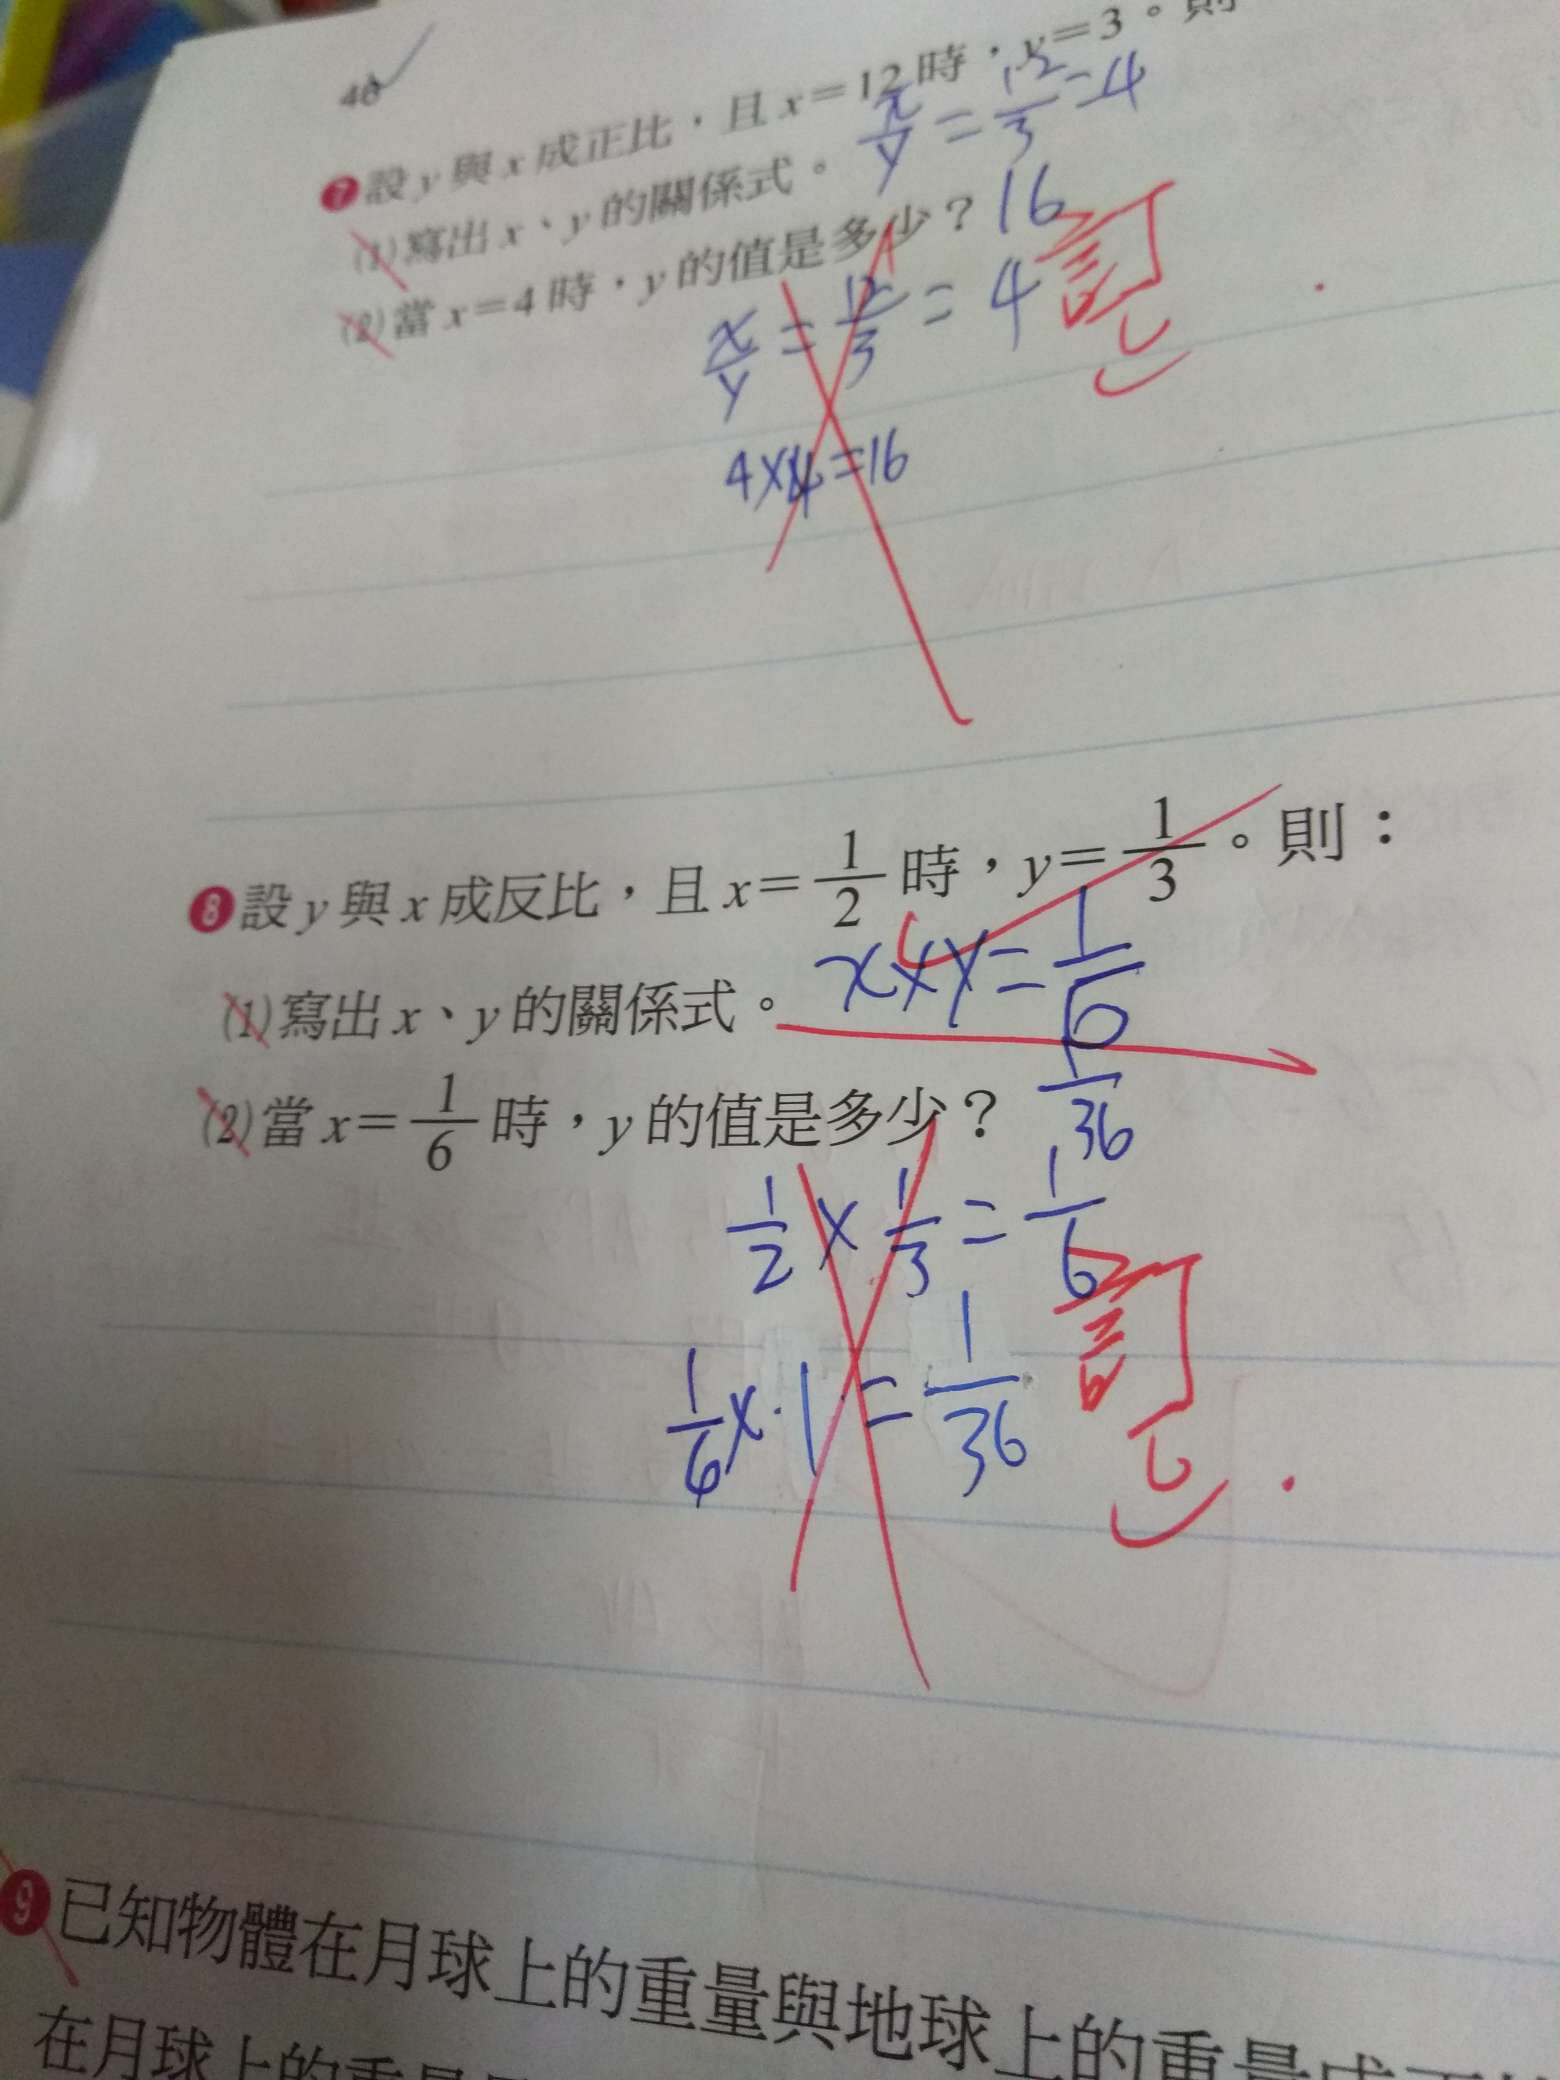 40
❼設 y 與 x 成正比，且 x=12 時，y=3。則
x/y = 12/3 = 4
(1)寫出 x、y 的關係式。
(2)當 x=4 時，y 的值是多少？ 16
x/y = 12/3 = 4
訂
4×4=16
❽設 y 與 x 成反比，且 x=1/2 時，y=1/3。則：
(1)寫出 x、y 的關係式。 x×y=1/6
(2)當 x=1/6 時，y 的值是多少？ 1/36
1/2 × 1/3 = 1/6
訂
1/6 × 1 = 1/36
❾已知物體在月球上的重量與地球上的重量成正
在月球上的重量